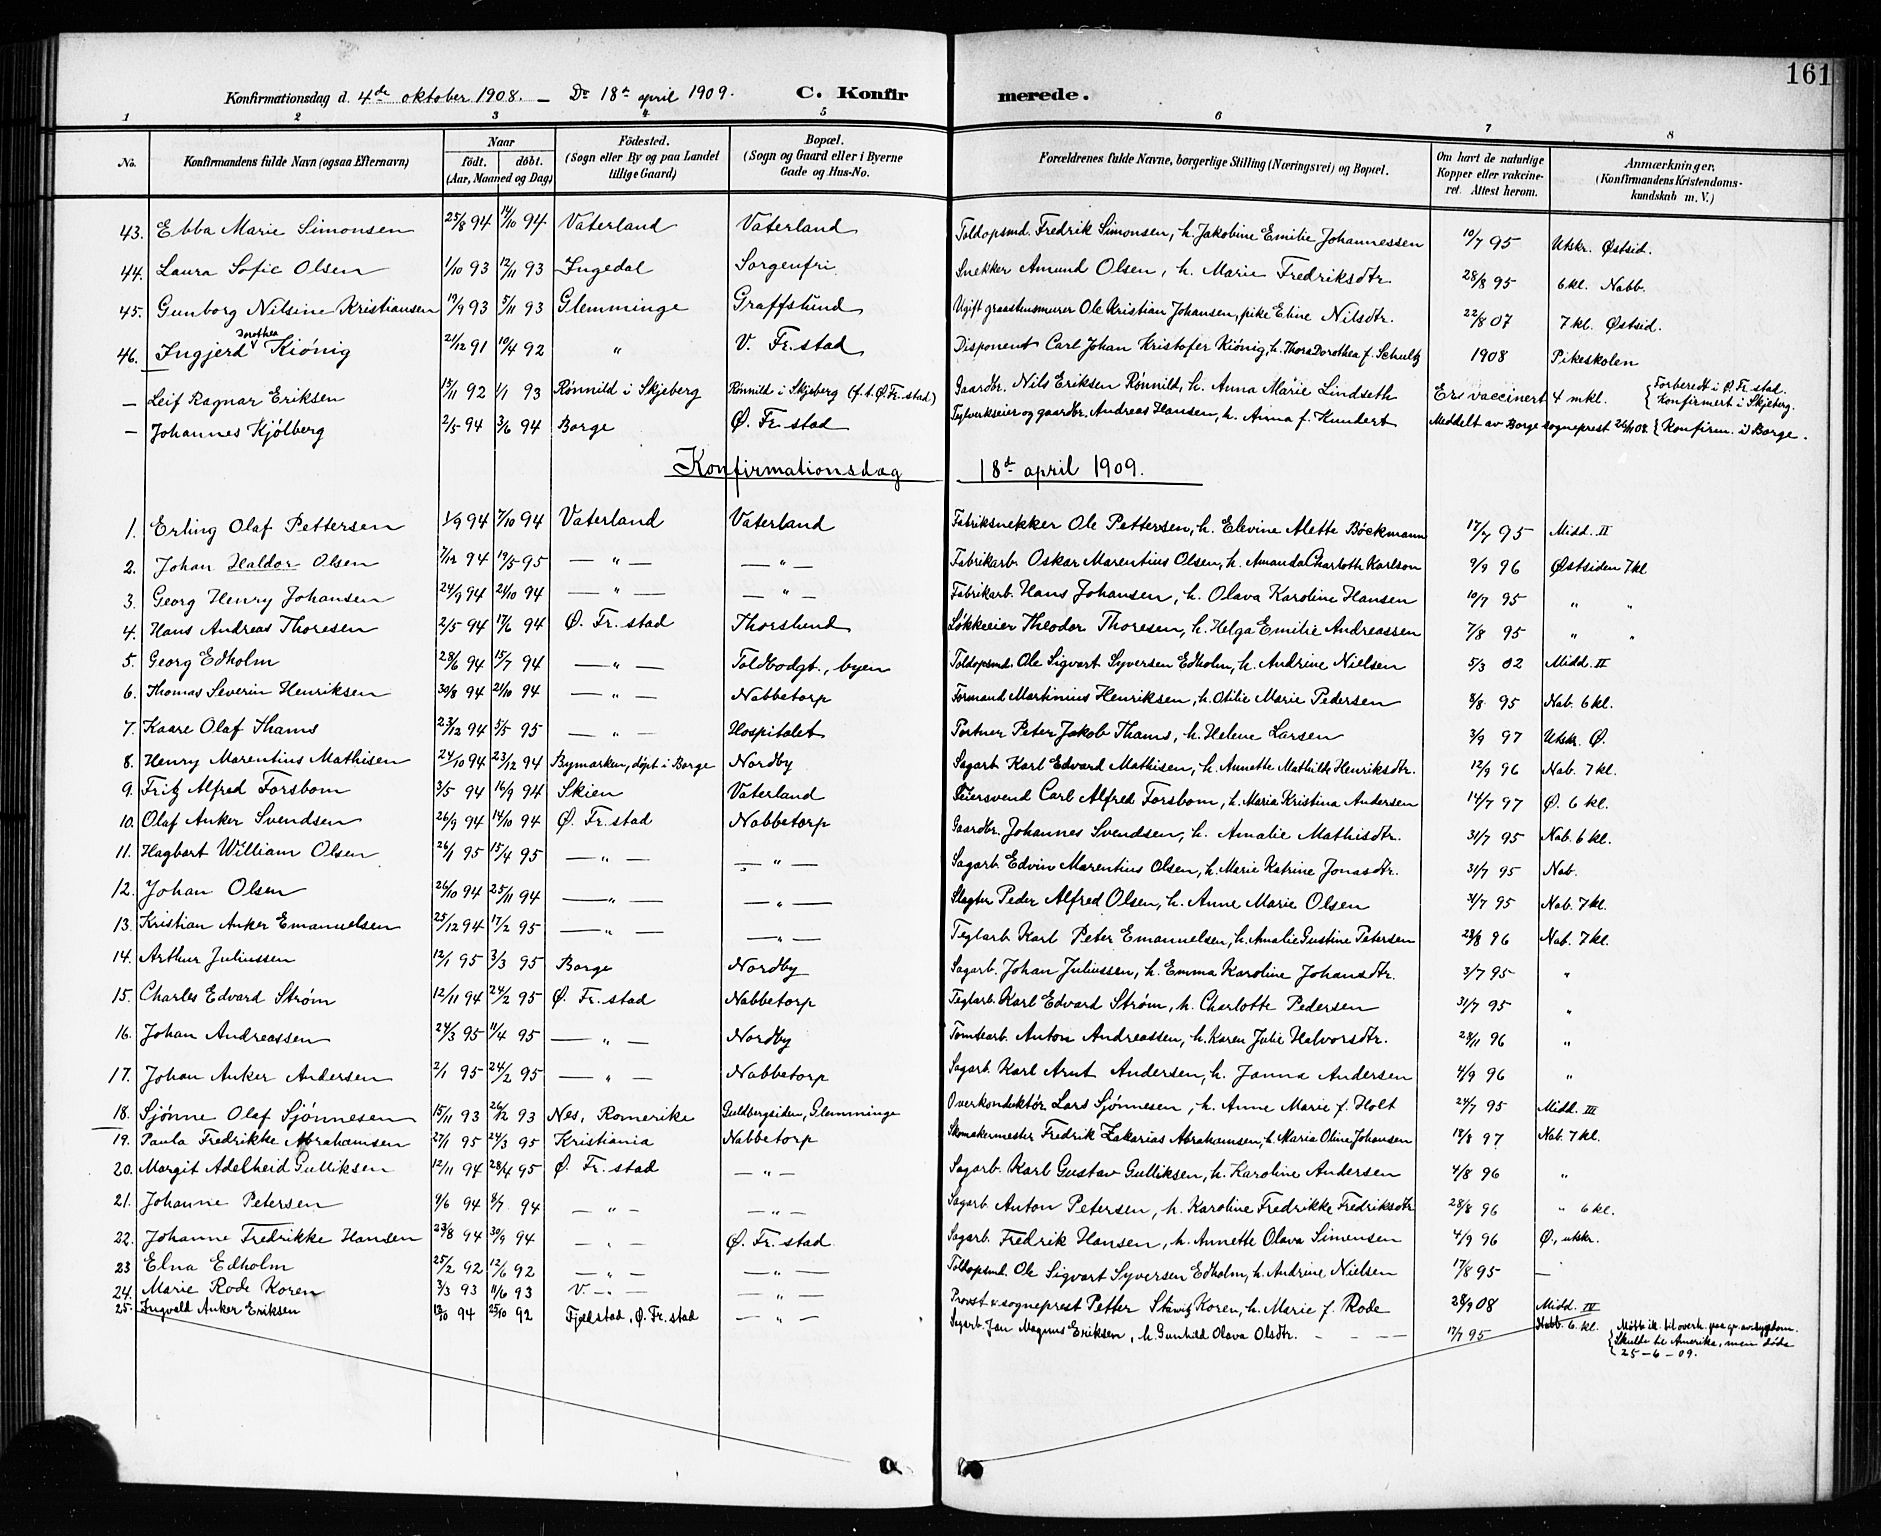 161
Konfirmationsdag d. 4de oktober 1908. — Do 18de april 1909. C. Konfirmerede.
1 2 3 4 5 6 7 8
No. Konfirmandens fulde Navn (ogsaa Efternavn) Naar født. døbt. (Aar, Maaned og Dag) Fødested. (Sogn eller By og paa Landet tillige Gaard) Bopæl. (Sogn og Gaard eller i Byerne Gade og Hus-No. Forældrenes fulde Navne, borgerlige Stilling (Næringsvei) og Bopæl. Om havt de naturlige Kopper eller vakcineret. Attest herom. Anmærkninger, (Konfirmandens Kristendomskundskab m. V.)
43. Ebba Marie Simonsen 25/8 94 14/10 94 Vaterland Vaterland Toldopsmd. Fredrik Simonsen, h. Jakobine Emilie Johannessen 10/7 95 Utskr. Østsid.
44. Laura Sofie Olsen 1/10 93 12/11 93 Ingedal Sorgenfri Snekker Amund Olsen, h. Marie Fredriksdtr. 28/8 95 6kl. Nabb.
45. Gunborg Nilsine Kristiansen 19/9 93 5/11 93 Glemminge Graffslund Ugift graastensmurer Ole Kristian Johansen, pike Eline Nilsdtr. 22/8 07 7 kl. Østsid.
46. Ingjerd Dorothea Kiønig 21/12 91 10/4 92 " V. Fr.stad Disponent Carl Johan Kristofer Kiønig, h. Thora Dorothea f. Schultz 1908 Pikeskolen
— Leif Ragnar Eriksen 13/11 92 1/1 93 Rønnild i Skjeberg Rønnild i Skjeberg (f. t. Ø. Fr.stad) Gaardbr. Nils Eriksen Rønnild, h. Anna Marie Lindseth Er vaccinert 4 mkl. { Forberedt i Ø. Fr.stad. Konfirmert i Skjeberg.
— Johannes Kjølberg 2/5 94 3/6 94 Borge Ø. Fr.stad Teglverkseier og gaardbr. Andreas Hansen, h. Anna f. Hundert Meddelt av Borge sogneprest 26/11 08. { Konfirm. i Borge.
Konfirmationsdag 18de april 1909.
1. Erling Olaf Pettersen 1/9 94 7/10 94 Vaterland Vaterland Fabriksnekker Ole Pettersen, h. Elevine Mette Bøckmann 17/7 95 Midd. II
2. Johan Haldor Olsen 7/12 94 19/5 95 — " — — " — Fabrikarb. Oskar Marentius Olsen, h. Amanda Charloth Karlson 9/9 96 Østsiden 7kl
3. Georg Henry Johansen 24/9 94 21/10 94 — " — — " — Fabrikarb. Hans Johansen, h. Olava Karoline Hansen 10/7 95 " "
4. Hans Andreas Thoresen 2/5 94 17/6 94 Ø. Fr.stad Thorslund Løkkeeier Theodor Thoresen, h. Helga Emilie Andreassen 7/8 95 " "
5. Georg Edholm 28/6 94 15/7 94 — " — Toldbodgt., byen Toldopsmd. Ole Sigvart Syversen Edholm, h. Andrine Nielsen 5/3 02 Midd. II
6. Thomas Severin Henriksen 30/8 94 21/10 94 — " — Nabbetorp Formand Martinius Henriksen, h. Otilie Marie Pedersen 8/8 95 Nab. 6kl.
7. Kaare Olaf Thams 23/12 94 5/5 95 — " — Hospitalet Portner Peter Jakob Thams, h. Helene Larsen 3/9 97 Utskr. Ø.
8. Henry Marentius Mathisen 24/10 94 23/12 94 Bymarken, døpt i Borge Nordby Sagarb. Karl Edvard Mathisen, h. Annette Mathilde Henriksdtr. 12/9 96 Nab. 7kl.
9. Fritz Alfred Forsbom 3/5 94 16/9 94 Skien Vaterland Feiersvend Carl Alfred Forsbom, h. Maria Kristina Andersen 14/7 97 Ø. 6 kl.
10. Olaf Anker Svendsen 26/9 94 14/10 94 Ø. Fr.stad Nabbetorp Gaardbr. Johannes Svendsen, h. Amalie Mathisdtr. 31/7 95 Nab. 6kl.
11. Hagbart William Olsen 26/1 95 15/4 95 — " — — " — Sagarb. Edvin Marentius Olsen, h. Marie Katrine Jonasdtr. 31/7 95 Nab.
12. Johan Olsen 26/10 94 25/11 94 — " — — " — Slagter Peder Alfred Olsen, h. Anne Marie Olsen 31/7 95 Nab. 7kl.
13. Kristian Anker Emanuelsen 25/12 94 17/2 95 — " — — " — Teglarb. Karl Peter Emanuelsen, h. Amalie Gustine Petersen 28/8 96 Nab. 7kl.
14. Arthur Juliussen 12/1 95 3/3 95 Borge Nordby Sagarb. Johan Juliussen, h. Emma Karoline Johansdtr. 3/7 95 "
15. Charles Edvard Strøm 12/11 94 24/2 95 Ø. Fr.stad Nabbetorp Teglarb. Karl Edvard Strøm, h. Charlotte Pedersen 31/7 95 "
16. Johan Andreassen 24/3 95 11/4 95 — " — Nordby Tomtearb. Anton Andreassen, h. Karen Julie Halvorsdtr. 23/11 96 "
17. Johan Anker Andersen 2/1 95 24/2 95 — " — Nabbetorp Sagarb. Karl Arnt Andersen, h. Janna Andersen 4/9 96 "
18. Sjønne Olaf Sjønnesen 15/11 93 26/12 93 Nes, Romerike Guldbergsiden, Glemminge Overkonduktør Lars Sjønnesen, h. Anne Marie f. Holt 24/7 95 Midd. III
19. Paula Fredrikke Abrahamsen 27/1 95 24/3 95 Kristiania Nabbetorp Skomakermester Fredrik Zakarias Abrahamsen, h. Maria Oline Johansen 18/8 97 Nab. 7kl.
20. Margit Adelheid Gulliksen 12/11 94 28/4 95 Ø. Fr.stad — " — Sagarb. Karl Gustav Gulliksen, h. Karoline Andersen 4/8 96 "
21. Johanne Petersen 4/6 94 8/7 94 — " — — " — Sagarb. Anton Petersen, h. Karoline Fredrikke Fredriksdtr 28/8 96 " 6kl.
22. Johanne Fredrikke Hansen 23/8 94 30/9 94 — " — Ø. Fr.stad Sagarb. Fredrik Hansen, h. Annette Olava Simensen 4/9 96 Ø., utskr.
23 Elna Edholm 25/2 92 12/6 92 — " — — " — Toldopsmd. Ole Sigvart Syversen Edholm, h. Andrine Nielsen 17/8 95 —
24. Marie Rode Koren 3/3 93 11/6 93 V. — " — — " — Provst & sogneprest Petter Koren, h. Marie f. Rode 28/9 08 Midd. IV
25. Ingvald Anker Eriksen 12/10 94 25/10 92 Fjelstad, Ø. Fr.stad — " — Sagarb. Jan Magnus Eriksen, h. Gunhild Olava Olsdtr. — — — 17/7 95 Nabb. 6. kl. { Møtte ik. til overh. paa gr. av sygdom. Skulde til Amerika, men døde 25-6-09.